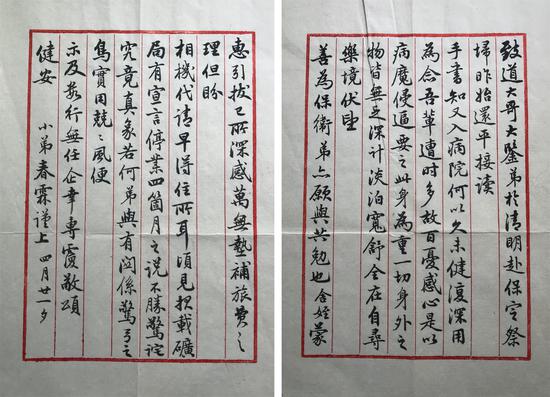 致道大哥大鑒弟於清明赴保定祭
掃昨始還平接讀
手書知又入病院何以久未健復深用
為念吾輩遭時多故百憂感心是以
病魔侵逼要之此身為重一切身外之
物皆無足深計淡泊寬舒全在自尋
樂境伏望
善為保衛弟亦願與共勉也舍姪蒙
惠引拔已所深感萬無墊補旅費之
理但盼
相機代請早得住所耳頃見報載礦
局有宣言停業四箇月之說不勝驚詫
究竟真象若何弟與有關係驚弓之
鳥實用兢〻風便
示及為行無任企幸專頌
健安
小弟春霖謹上 四月廿一夕